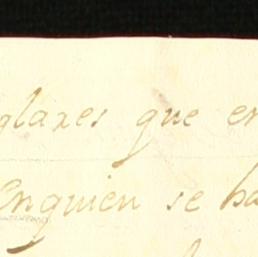 glares que en
Enquien se ha